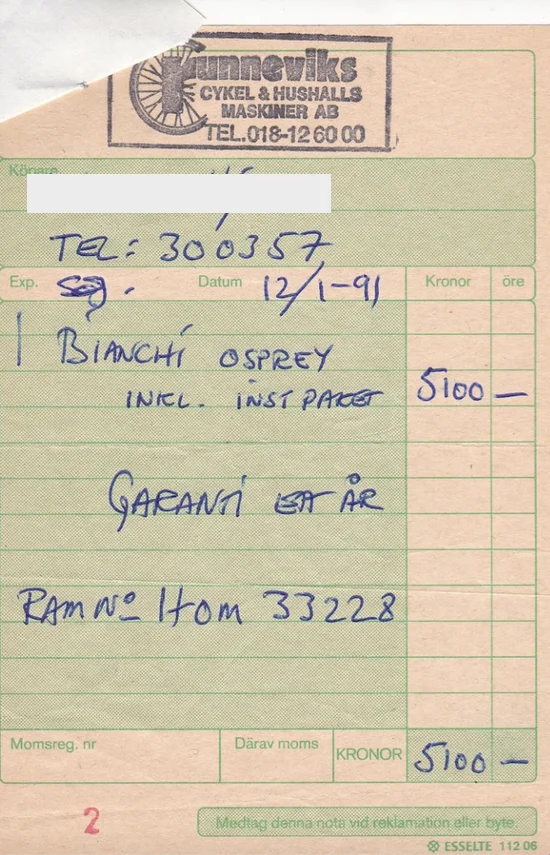 unneviks
CYKEL & HUSHALLS
MASKINER AB
TEL.018-12 60 00
Köpare
TEL: 300357
Exp. Datum 12/1-91 Kronor öre
1 BIANCHI OSPREY
INKL. INST PAKET 5100 —
GARANTI ETT ÅR
RAM Nº HOM 33228
Momsreg. nr Därav moms KRONOR 5100 —
2
Medtag denna nota vid reklamation eller byte.
ESSELTE 112 06